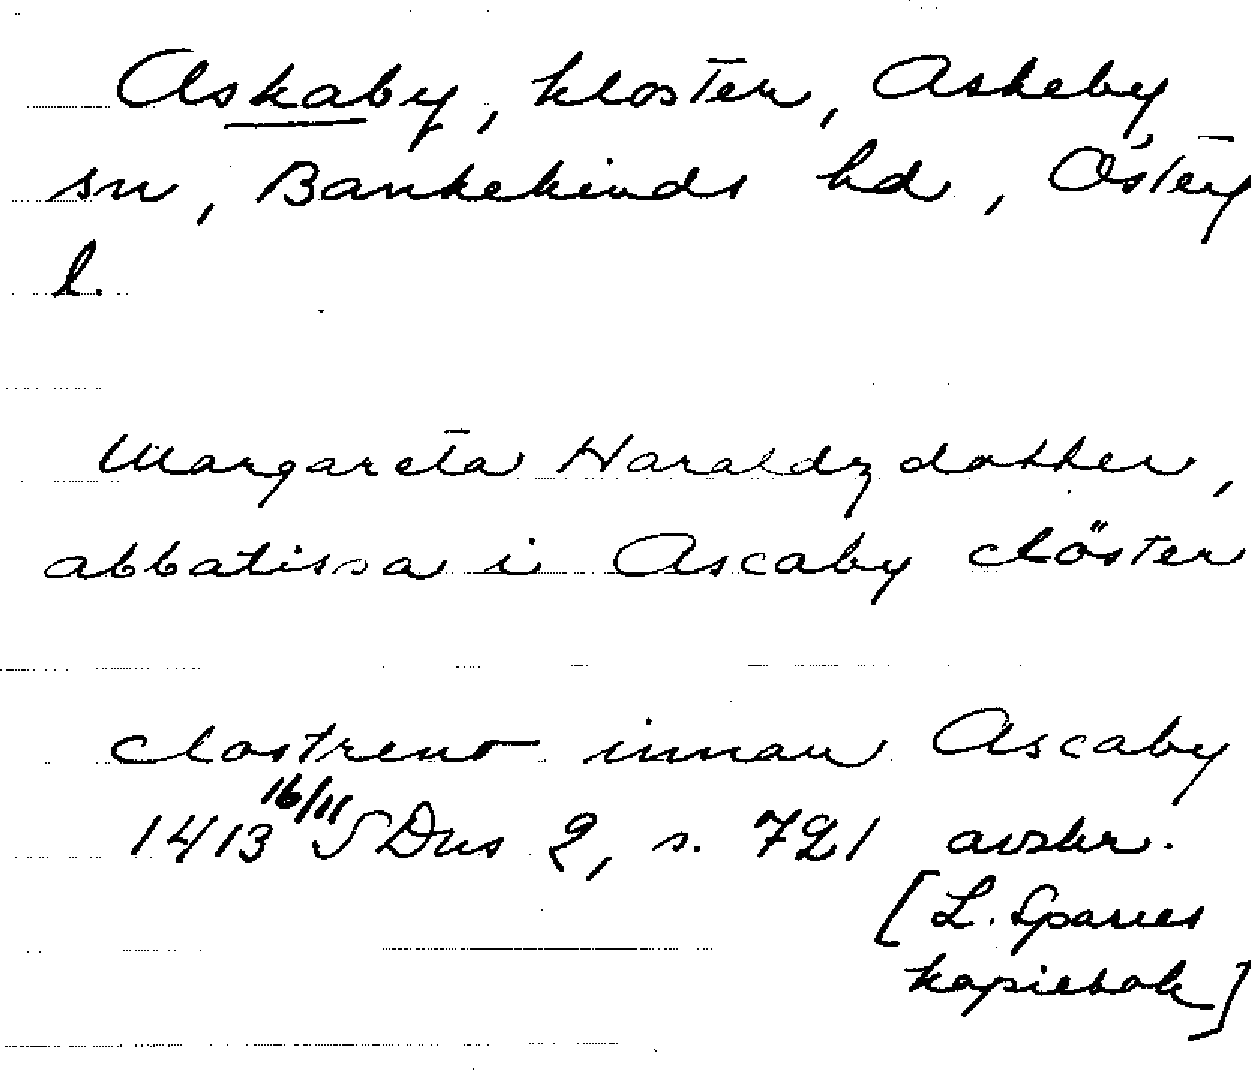 Askaby, kloster, Askeby
sn, Bankekinds hd, Österg
l.
Margareta Haraldz dotter,
abbatissa i Ascaby clöster
clostreno innan Ascaby
1413 16/11 SDns 2, s. 721 avskr.
[L. Sparres
kopiebok]